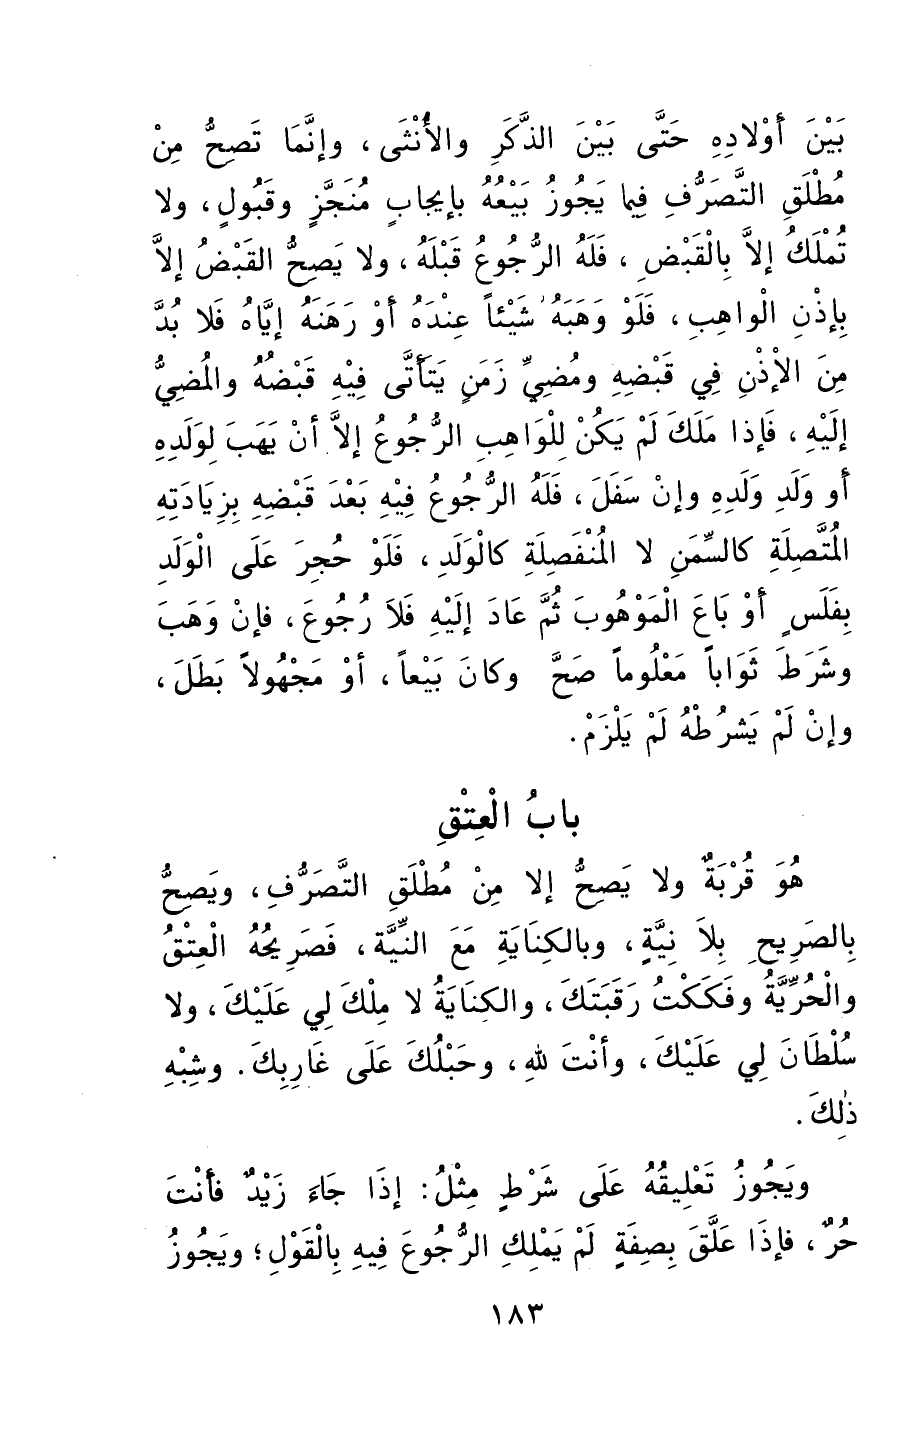 بَيْنَ أَوْلادِهِ حَتَّى بَيْنَ الذَّكَرِ والأُنْثَى ، وإنَّمَا تَصِحُّ مِنْ
مُطْلَقِ التَّصَرُّفِ فِيما يَجُوزُ بَيْعُهُ بإيجابٍ مُنَجَّزٍ وقَبُولٍ ، ولا
تُمْلَكُ إلاَّ بِالْقَبْضِ ، فَلَهُ الرُّجُوعُ قَبْلَهُ ، ولا يَصِحُّ القَبْضُ إلاَّ
بِإذْنِ الْواهِبِ ، فَلَوْ وَهَبَهُ شَيْئاً عِنْدَهُ أوْ رَهَنَهُ إيَّاهُ فَلا بُدَّ
مِنَ الإْذْنِ فِي قَبْضِهِ ومُضِيِّ زَمَنٍ يَتَأَتَّى فِيْهِ قَبْضُهُ والمُضِيُّ
إلَيْهِ ، فَإذا مَلَكَ لَمْ يَكُنْ لِلْوَاهِبِ الرُّجُوعُ إلاَّ أنْ يَهَبَ لِوَلَدِهِ
أو وَلَدِ وَلَدِهِ وإنْ سَفَلَ ، فَلَهُ الرُّجُوعُ فِيْهِ بَعْدَ قَبْضِهِ بِزِيَادَتِهِ
المُتَّصِلَةِ كالسِّمَنِ لا المُنْفَصِلَةِ كالْوَلَدِ ، فَلَوْ حُجِرَ عَلَى الْوَلَدِ
بِفَلَسٍ أوْ بَاعَ الْمَوْهُوبَ ثُمَّ عَادَ إلَيْهِ فَلاَ رُجُوعَ ، فإنْ وَهَبَ
وشَرَطَ ثَوَاباً مَعْلُوماً صَحَّ وكانَ بَيْعاً ، أوْ مَجْهُولاً بَطَلَ ،
وإنْ لَمْ يَشرُطْهُ لَمْ يَلْزَمْ .
بابُ الْعِتْقِ
هُوَ قُرْبَةٌ ولا يَصِحُّ إلا مِنْ مُطْلَقِ التَّصَرُّفِ ، ويَصِحُّ
بِالصَرِيحِ بِلاَ نِيَّةٍ ، وبالكِنَايَةِ مَعَ النِّيَّة ، فَصَرِيحُهُ الْعِتْقُ
والْحُرِّيَّةُ وفَكَكْتُ رَقَبَتَكَ ، والكِنَايَةُ لا مِلْكَ لي عَلَيْكَ ، ولا
سُلْطَانَ لِي عَلَيْكَ ، وأنْتَ للهِ ، وحَبْلُكَ عَلَى غَارِبِكَ . وشِبْهِ
ذٰلِكَ .
ويَجُوزُ تَعْلِيقُهُ عَلَى شَرْطٍ مِثْلُ : إذَا جَاءَ زَيْدٌ فأنْتَ
حُرٌ ، فإذَا عَلَّقَ بِصِفَةٍ لَمْ يَمْلِكِ الرُّجُوعَ فِيهِ بِالْقَوْلِ ؛ ويَجُوزُ
١٨٣